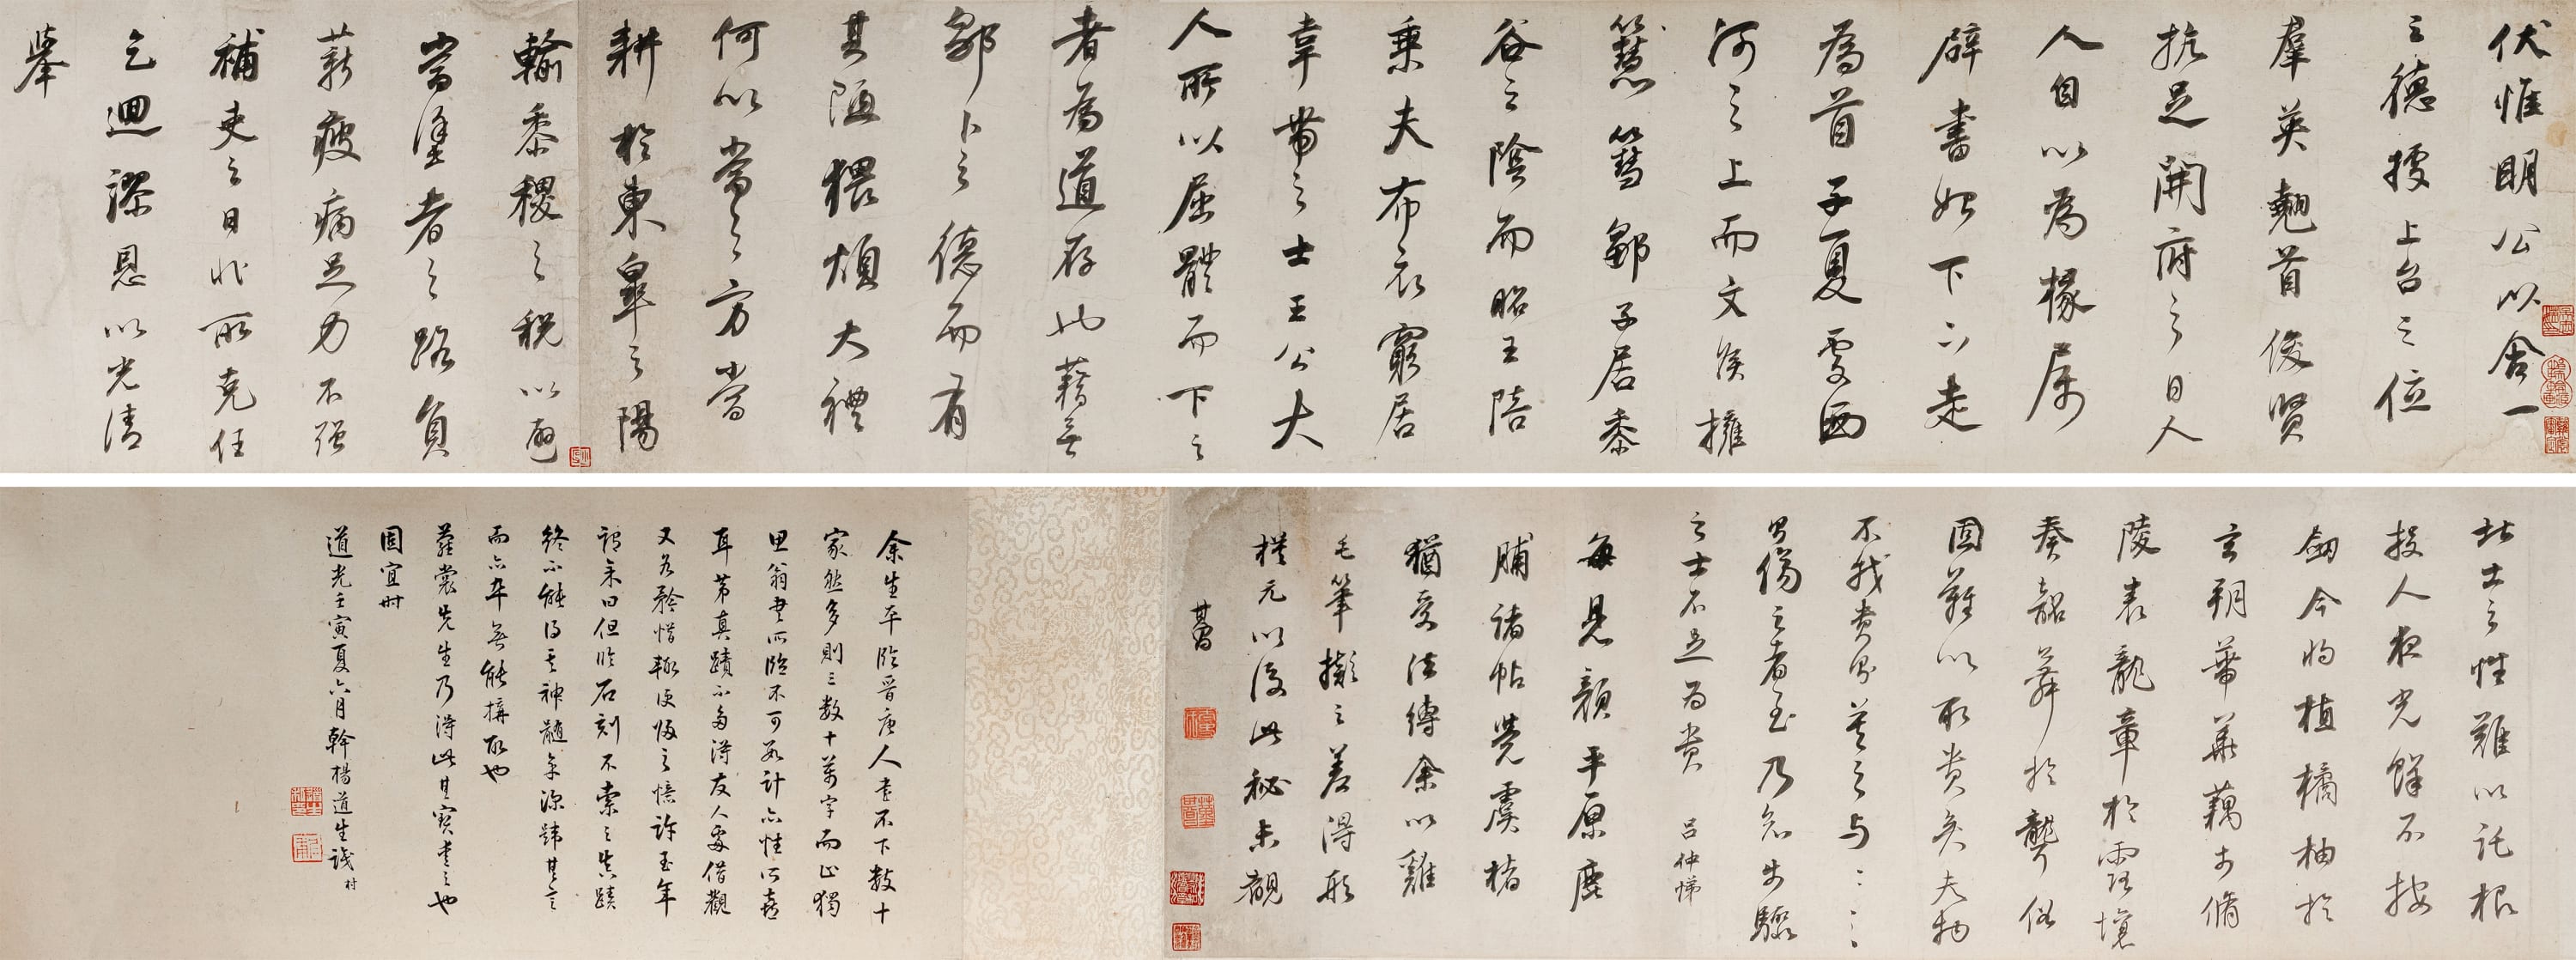 伏惟明公以含一
之德據上台之位
羣英翹首俊賢
抗足開府之日人
人自以為掾属
辟書始下下走
為首子夏處西
河之上而文侯擁
篲鄒子居黍
谷之陰而昭王陪
乘夫布衣窮居
韋帶之士王公大
人所以屈體而下之
者為道存也籍無
鄒卜之德而有
其陋猥煩大禮
何以當之方當
耕於東皋之陽
輸黍稷之稅以避
當塗者之路負
薪疲病足力不强
補吏之日非所克任
乞迴謬恩以光清
舉
北土之性難以託根
投人夜光鮮不按
劔今將植橘柚於
玄朔蒂華藕於脩
陵表龍章於裸壤
奏韶舞於聾俗
固難以取貴矣夫物
不我貴則莫之與莫之與
則傷之者至乃知步驟
之士不足為貴 呂仲悌
每見顏平原鹿
脯諸帖覺虞褚
猶受法縛余以雞
毛筆擬之差得形
模元以後此秘未覩
其昌
余生平臨晉唐人書不下數十
家然多則三數十萬字而止獨
思翁書所臨不可數計亦性所喜
耳第真蹟不多得友人處借觀
又各矜惜輒便悔之憶許玉年
謂余曰但臨石刻不索之真蹟
終不能得其神髓余深韙其言
而亦卒無能搆取也
蘿裳先生乃得此其寶書之也
固宜時
道光壬寅夏六月榦楊道生識